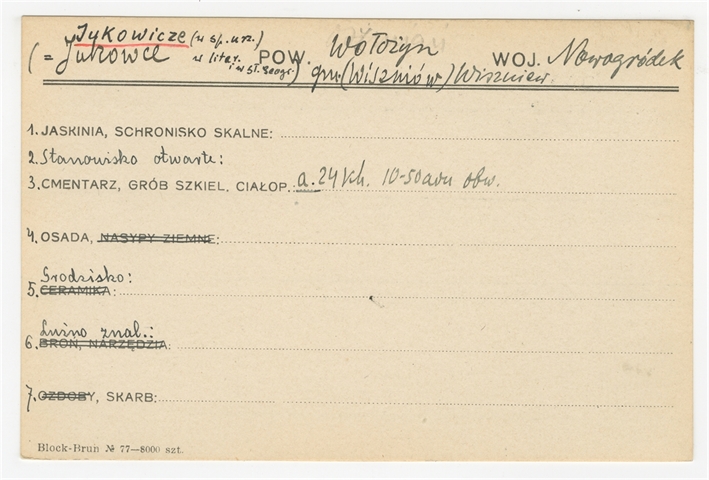 Jykowicze (w sp. urz.)
(= Jukowce w liter. i w sł. geogr.) POW. Wołożyn WOJ. Nowogródek
gm. (Wiszniów) Wiszniew.
1. JASKINIA, SCHRONISKO SKALNE:
2. Stanowisko otwarte:
3. CMENTARZ, GRÓB SZKIEL. CIAŁOP. a. 24 kh. 10-50 obw.
4. OSADA, NASYPY ZIEMNE:
Grodzisko:
5. CERAMIKA:
Luźno znal.:
6. BROŃ, NARZĘDZIA:
7. OZDOBY, SKARB:
Block-Brun № 77—8000 szt.